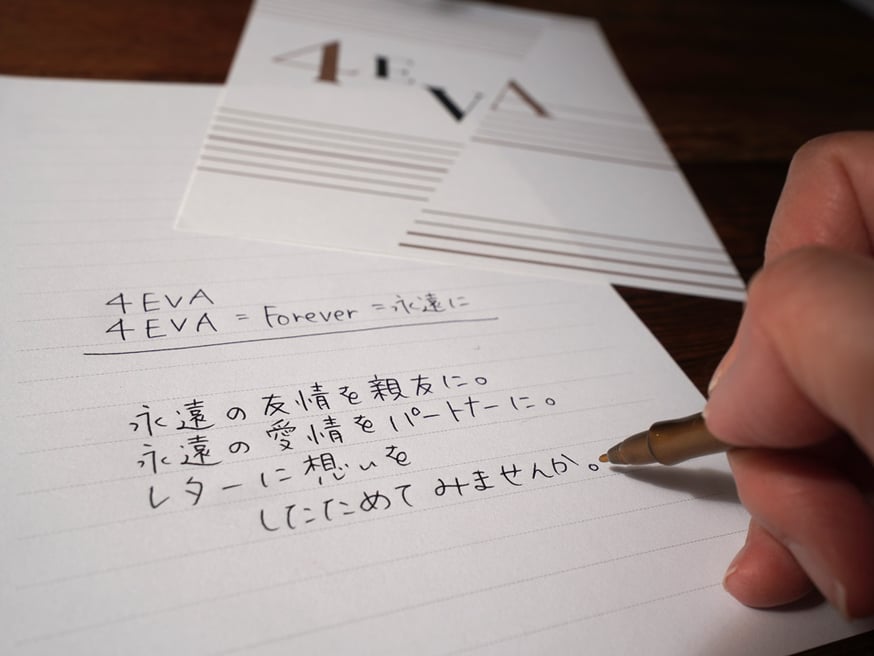 4EVA
4EVA
4EVA = Forever = 永遠に
永遠の友情を親友に。
永遠の愛情をパートナーに。
レターに想いを
したためてみませんか。